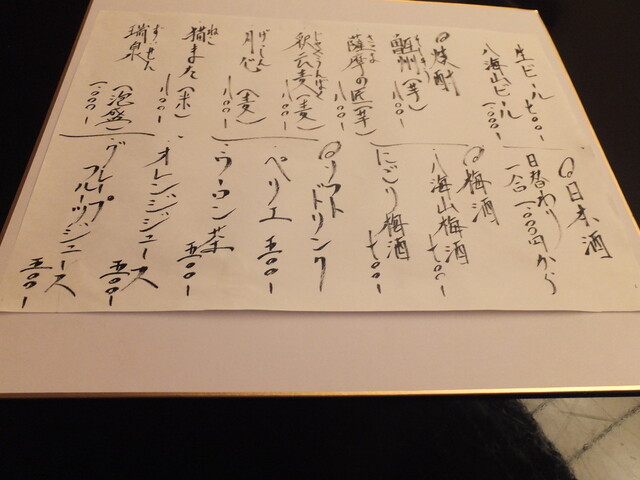 生ビール 七〇〇ー
八海山ビール 一、〇〇〇ー
◎焼酎
甑州(芋) 八〇〇ー
さつま
薩摩の匠(芋) 八〇〇ー
じゃくうんばく
釈云麦(麦) 八〇〇ー
げっしん
月心(麦) 八〇〇ー
ねこ
猫また(米) 八〇〇ー
ずいせん
瑞泉(泡盛) 一、〇〇〇ー
◎日本酒
日替わり
一合 一、〇〇〇円から
◎梅酒
八海山梅酒 七〇〇ー
にごり梅酒 七〇〇ー
◎ソフトドリンク
ペリエ 五〇〇ー
ウーロン茶 五〇〇ー
オレンジジュース 五〇〇ー
グレープフルーツジュース 五〇〇ー